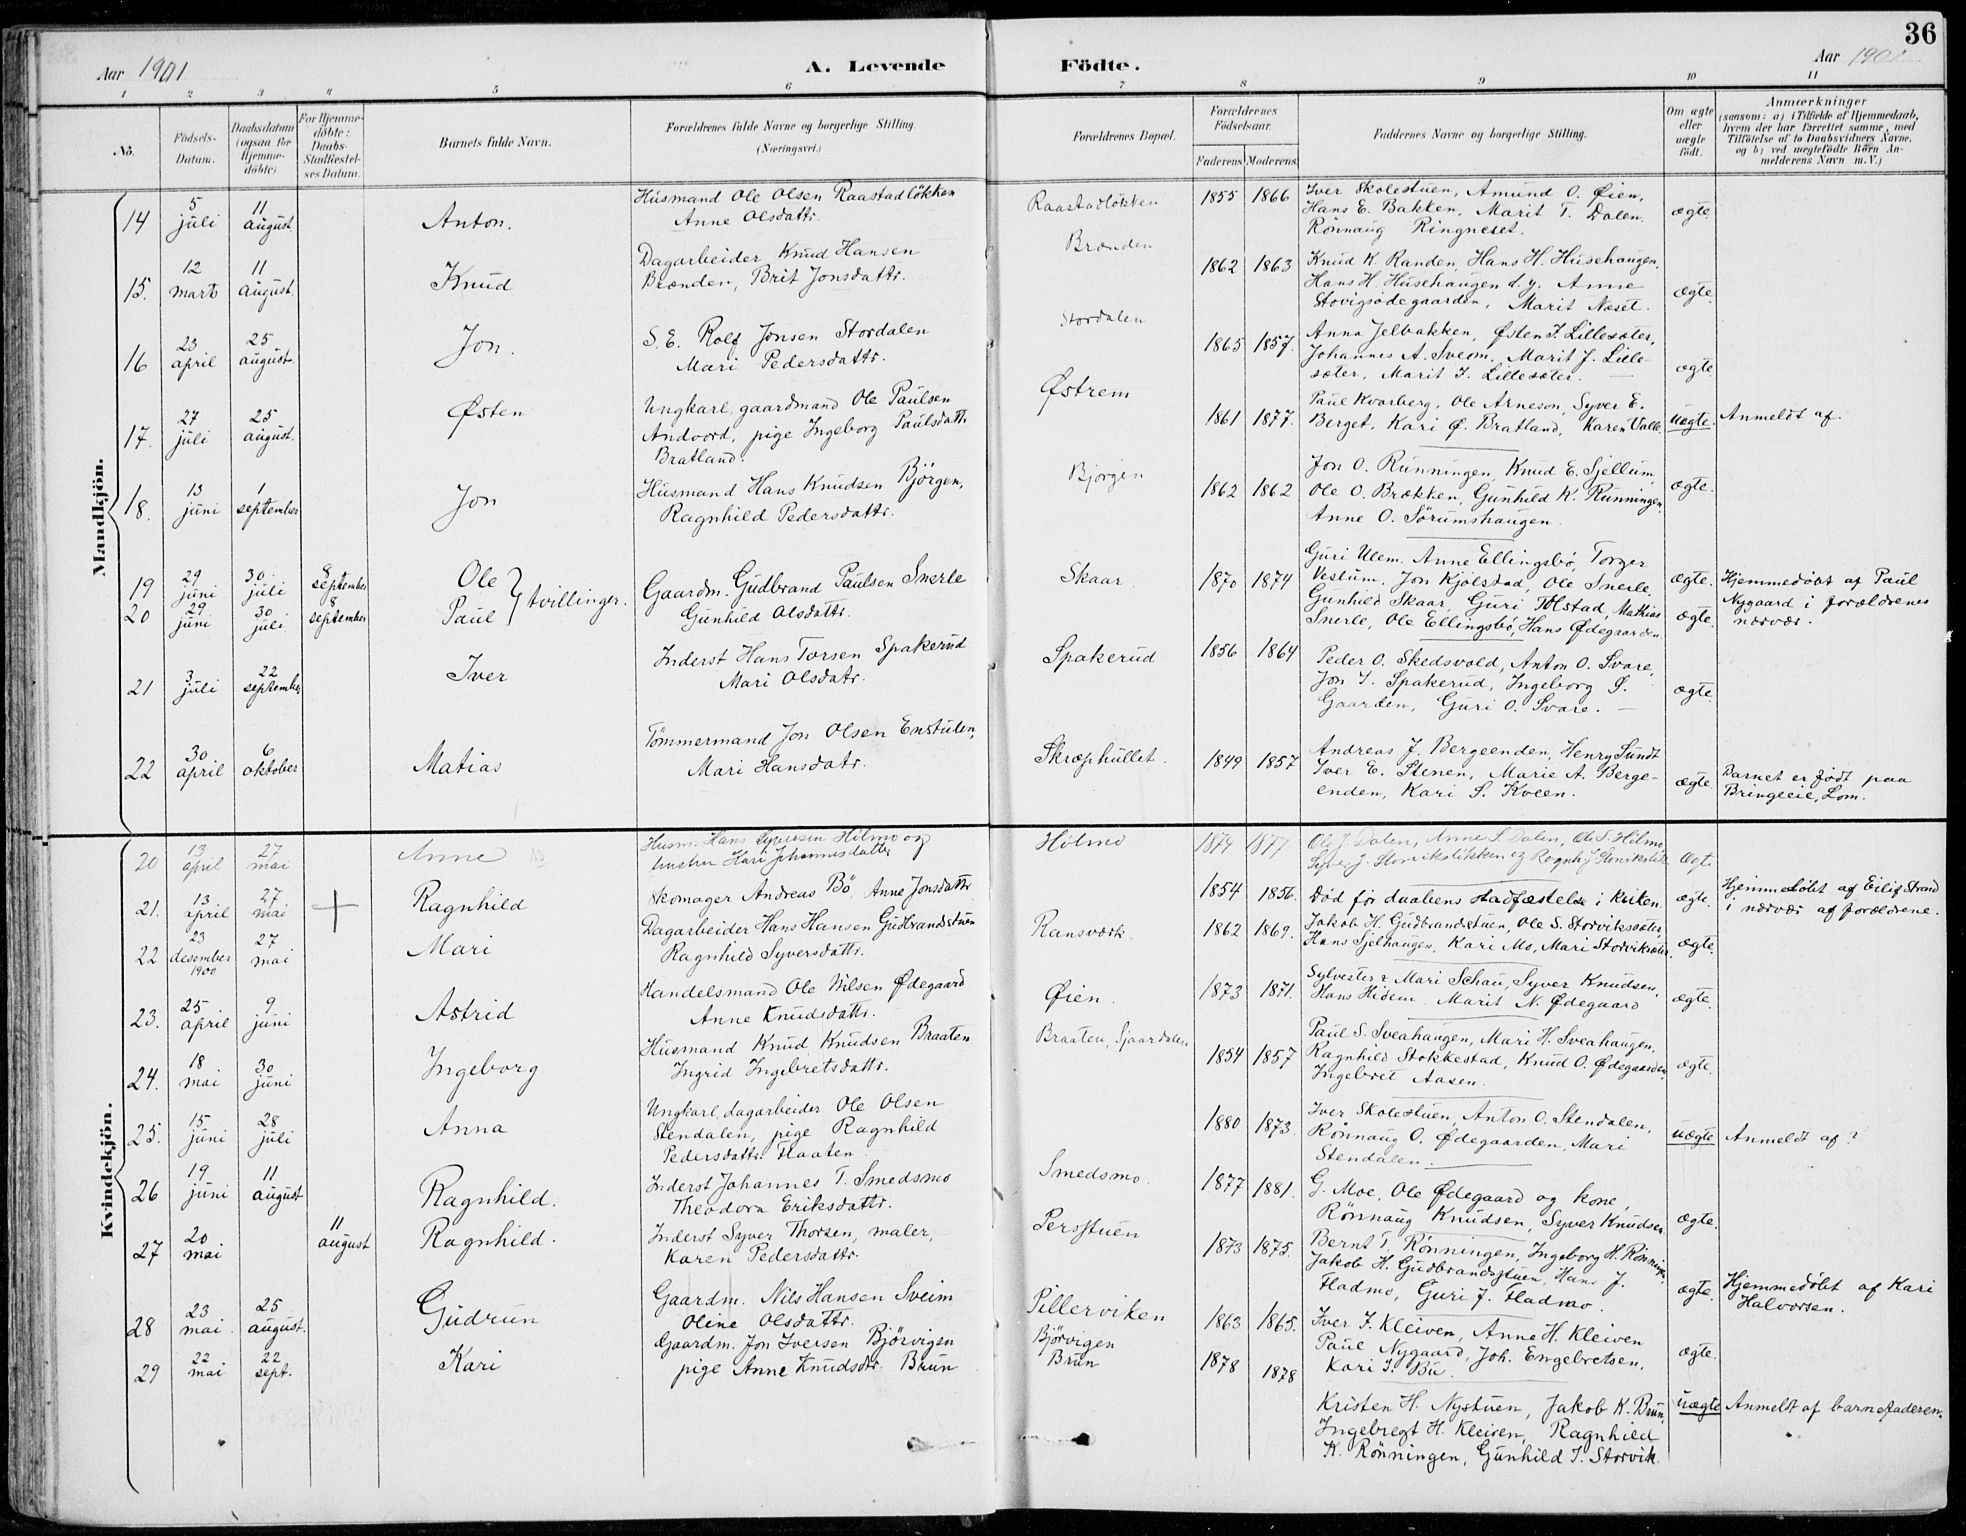 36
Aar 1901
A. Levende Födte.
Aar 1901
1 2 3 4 5 6 7 8 9 10 11
No.
Födsels-
Datum.
Daabsdatum
(ogsaa for
Hjemme-
döbte).
For Hjemme-
döbte:
Daabs-
Stadfæstel-
ses Datum.
Barnets fulde Navn.
Forældrenes fulde Navne og borgerlige Stilling.
(Næringsvei.)
Forældrenes Bopæl.
Forældrenes
Födselsaar.
Faderens Moderens
Faddernes Navne og borgerlige Stilling.
Om ægte
eller
uægte
födt.
Anmærkninger
(saasom: a) i Tilfælde af Hjemmedaab,
hvem der har forrettet samme, med
Tilföielse af to Daabsvidners Navne.
og b) ved uægtefödte Börn An-
melderens Navn m.V.)
Mandkjön.
14 5 juli 11 august Anton.
Husmand Ole Olsen Raastadløkken
Anne Olsdattr.
Raastadløkken 1855 1866
Iver Skolestuen, Amund O. Øien,
Hans E. Bakken, Marit T. Dalen,
Rönnaug Ringneset.
ægte.
15. 12 marts 11 august Knud
Dagarbeider Knud Hansen
Brænden, Brit Jonsdattr.
Brænden 1862 1863
Knud K. Randen, Hans H. Husehaugen,
Hans H. Husehaugen d.y. Anne
Stovigsødegaarden, Marit Neset.
ægte.
16 23 april 25 august Jon.
S. E. Rolf Jonsen Stordalen
Mari Pedersdattr.
Stordalen 1865 1857.
Anna Jelbakken, Østen J. Lillesæter,
Johannes A. Sveom, Marit J. Lille-
sæter, Marit I. Lillesæter.
ægte.
17. 27 juli 25 august. Østen
Ungkarl, gaardmand Ole Paulsen
Andvord, pige Ingeborg Paulsdattr.
Bratland.
Østrem 1861 1877.
Paul Kvarberg, Ole Arneson, Syver E.
Berget, Kari Ø. Bratland, Karen Valle.
uægte. Anmeldt af.
18. 13 juni 1 september Jon
Husmand Hans Knudsen Bjørgen,
Ragnhild Pedersdattr.
Bjørgen 1862 1862
Jon O. Runningen, Knud E. Sjellum,
Ole O. Brækken, Gunhild K. Runningen,
Anne O. Sörumshaugen.
ægte.
19 29 juni 30 juli 8 september Ole
20 29 juni 30 juli 8 september Paul
tvillinger.
Gaardm. Gudbrand Paulsen Snerle
Gunhild Olsdattr.
Skaar. 1870 1874
Guri Ulem. Anne Ellingsbø, Torger
Veslum, Jon Kjølstad, Ole Snerle,
Gunhild Skaar, Guri Tolstad, Mathias
Snerle, Ole Ellingsbø, Hans Ødegaarden.
ægte.
ægte.
Hjemmedøbt af Paul
Nygaard i forældrenes
nærvær.
21 3 juli 22 september Iver
Inderst Hans Torsen Spakerud
Mari Olsdatr.
Spakerud 1856 1864
Peder O. Skedsvold, Anton O. Svare,
Jon I. Spakerud, Ingeborg S.
Gaarden, Guri O. Svare.
ægte.
22 30 april 6 oktober Matias
Tömmermand Jon Olsen Enstulen,
Mari Hansdatr.
Skræphullet. 1849 1857
Andreas J. Bergeenden, Henry Sundt
Iver E. Stenen, Marie A. Berge-
enden, Kari S. Kveen.
ægte.
Barnet er født paa
Bringeeie, Lom.
Kvindekjön.
20 13 april 27 mai Anne
Husm. Hans Syversen Hilmo og
hustru Kari Johannesdatter
Hilmo 1874 1877
Ole J. Dalen, Anne S. Dalen, Ole S. Hilmo,
Syver J. Storvikslökken og Ragnh. J. Storvikslök.
Ægt.
21. 13 april 27 mai Ragnhild
Skomager Andreas Bö. Anne Jonsdattr
1854 1856.
Död for daabens stadfæstelse i kirken.
ægte.
Hjemmedøbt af Eilif Strand
i nærvær af forældrene.
22 23 desember 1900 27 mai Mari
Dagarbeider Hans Hansen Gudbrandstuen
Ragnhild Syversdattr.
Ransværk. 1862 1869.
Jakob H. Gudbrandstuen, Ole S. Storvikssæter,
Hans Sjelhaugen, Kari Mo, Mari Storviksæter.
ægte.
23. 25 april 9 juni Astrid
Handelsmand Ole Nilsen Ødegaard
Anne Knudsdattr.
Øien. 1873 1871.
Sylvester & Mari Schau, Syver Knudsen,
Hans Hidem, Marit N. Ødegaard
ægte.
24. 18 mai 30 juni Ingeborg
Husmand Knud Knudsen Braaten
Ingrid Ingebretsdattr.
Braaten, Sjaardalen 1854 1857
Paul S. Sveahaugen, Mari H. Sveahaugen,
Ragnhild Stokkestad, Knud O. Ødegaarden,
Ingebret Aasen.
ægte.
25. 15 juni 28 juli Anna
Ungkarl, dagarbeider Ole Olsen
Stendalen, pige Ragnhild
Pedersdattr. Haaten
1880 1873.
Iver Skolestuen, Anton O. Stendalen,
Rönnaug O. Ødegaarden, Mari
Stendalen.
uægte Anmeldt af?
26 19 juni 11 august Ragnhild.
Inderst Johannes T. Smedsmo
Theodora Eriksdattr.
Smedsmo. 1877 1881.
G. Moe, Ole Ødegaard og kone,
Rönnaug Knudsen, Syver Knudsen.
ægte.
27 20 mai 11 august Ragnhild.
Inderst Syver Thorsen, maler,
Karen Pedersdattr.
Persstuen 1873 1875.
Bernt T. Rønningen, Ingeborg H. Rønningen,
Jakob H. Gudbrandstuen, Hans J.
Fladmo, Guri J. Fladmo.
ægte.
Hjemmedøbt af Kari
Halvorsen.
28 23 mai. 25 august. Gudrun
Gaardm. Nils Hansen Sveim
Oline Olsdattr.
Pillerviken 1863 1865.
Iver I. Kleiven, Anne H. Kleiven
Paul Nygaard, Joh. Engebretsen,
Kari I. Bu.
ægte.
29 22 mai 22 sept. Kari
Gaardm. Jon Iversen Bjørvigen
pige Anne Knudsdr. Brun
Bjørvigen
Brun
1878 1878
Kristen H. Nystuen, Jakob K. Brun,
Ingebregt H. Kleiven, Ragnhild
K. Rønningen, Gunhild I. Storvik.
uægte Anmeldt af barnefaderen.